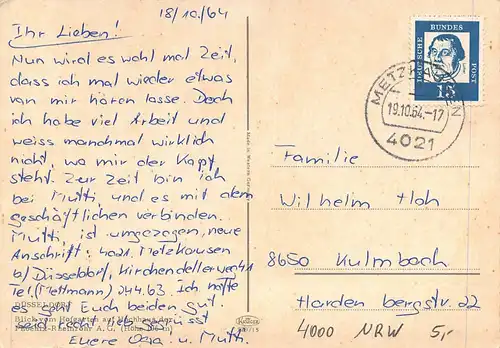 18/10./64
Ihr Lieben!
Nun wird es wohl mal Zeit,
dass ich mal wieder etwas
von mir hören lasse. Doch
ich habe viel Arbeit und
weiss manchmal wirklich
nicht, wo mir der Kopf
steht. Zur Zeit bin ich
bei Mutti, und es mit dem
geschäftlichen verbinden.
Mutti, ist umgezogen, neue
Anschrift: 4021 Metzkausen
b/Düsseldorf, Kirchendellerweg 41
Tel (Mettmann) 244.63. Ich hoffe
es geht Euch beiden gut
seid recht lieb
Euere u. Mutti.
DÜSSELDORF
Blick vom Hofgarten auf Hochhaus der
Phoenix-Rheinrohr A. G.
DEUTSCHE BUNDESPOST
15
METZKAUSEN
19.10.64.-17
4021
Familie
Wilhelm Hoh
8650 Kulmbach
Hardenbergstr. 22
4000 NRW 5,-